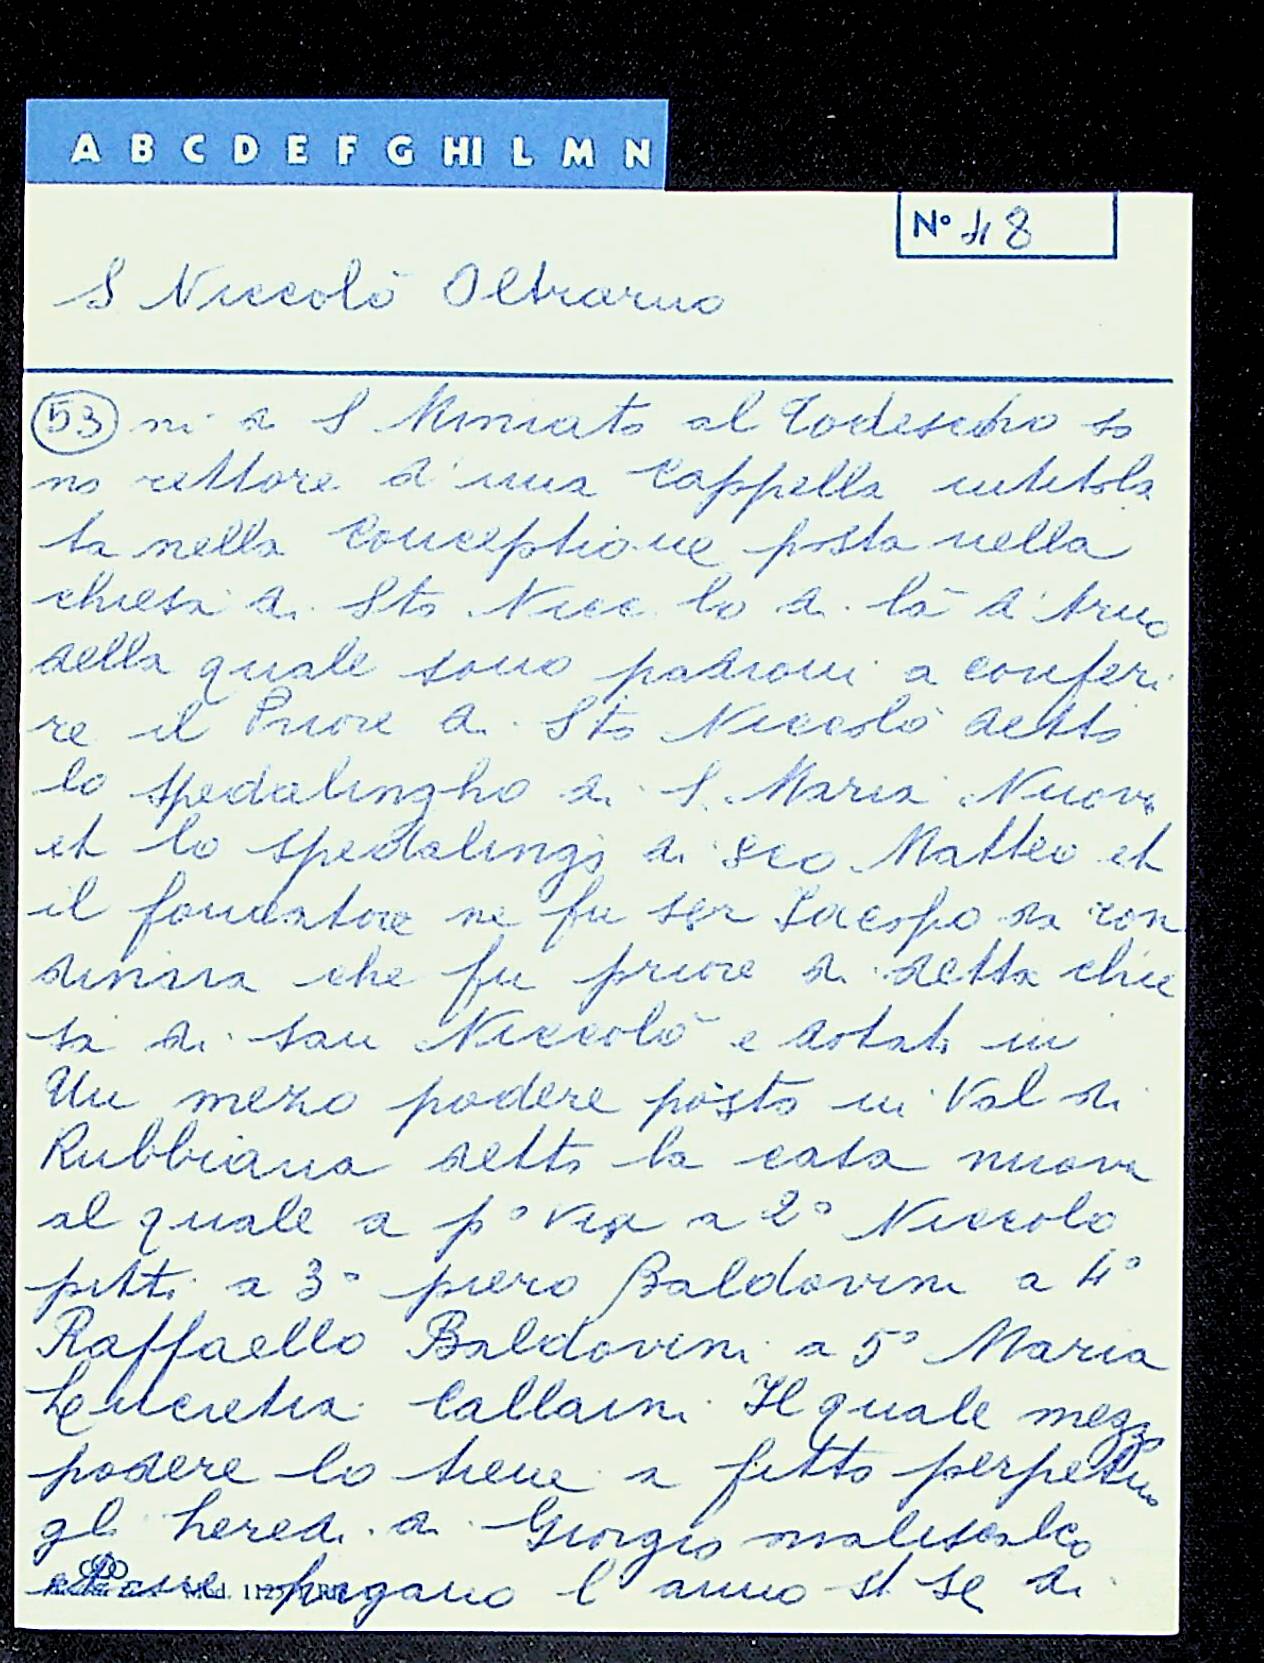 A B C D E F G HI L M N
N° 48
S Niccolò Oltrarno
53 ni di S Miniato al Todescho so
no rettore d'una Cappella intitola
ta nella Conceptione posta nella
chiesa di Sto Nicc lo di là d'Arno
della quale sono padroni a conferi
re il Priore di Sto Niccolò detto
lo Spedalingho di S. Maria Nuova
et lo spedalingo di Sco Matteo et
il fondatore ne fu ser Iacopo da ron
dinaia che fu priore di detta chie
sa di San Niccolò e dotata in
Un mezo podere posto in Val di
Rubbiana detto la casa nuova
al quale a p° via a 2° Niccolo
pitti a 3° piero Baldovini a 4°
Raffaello Baldovini a 5° Maria
Lucretia Callaini Il quale mezzo
podere lo tiene a fitto perpetuo
gli heredi di Giorgio maliscalco
pagano l'anno st se di